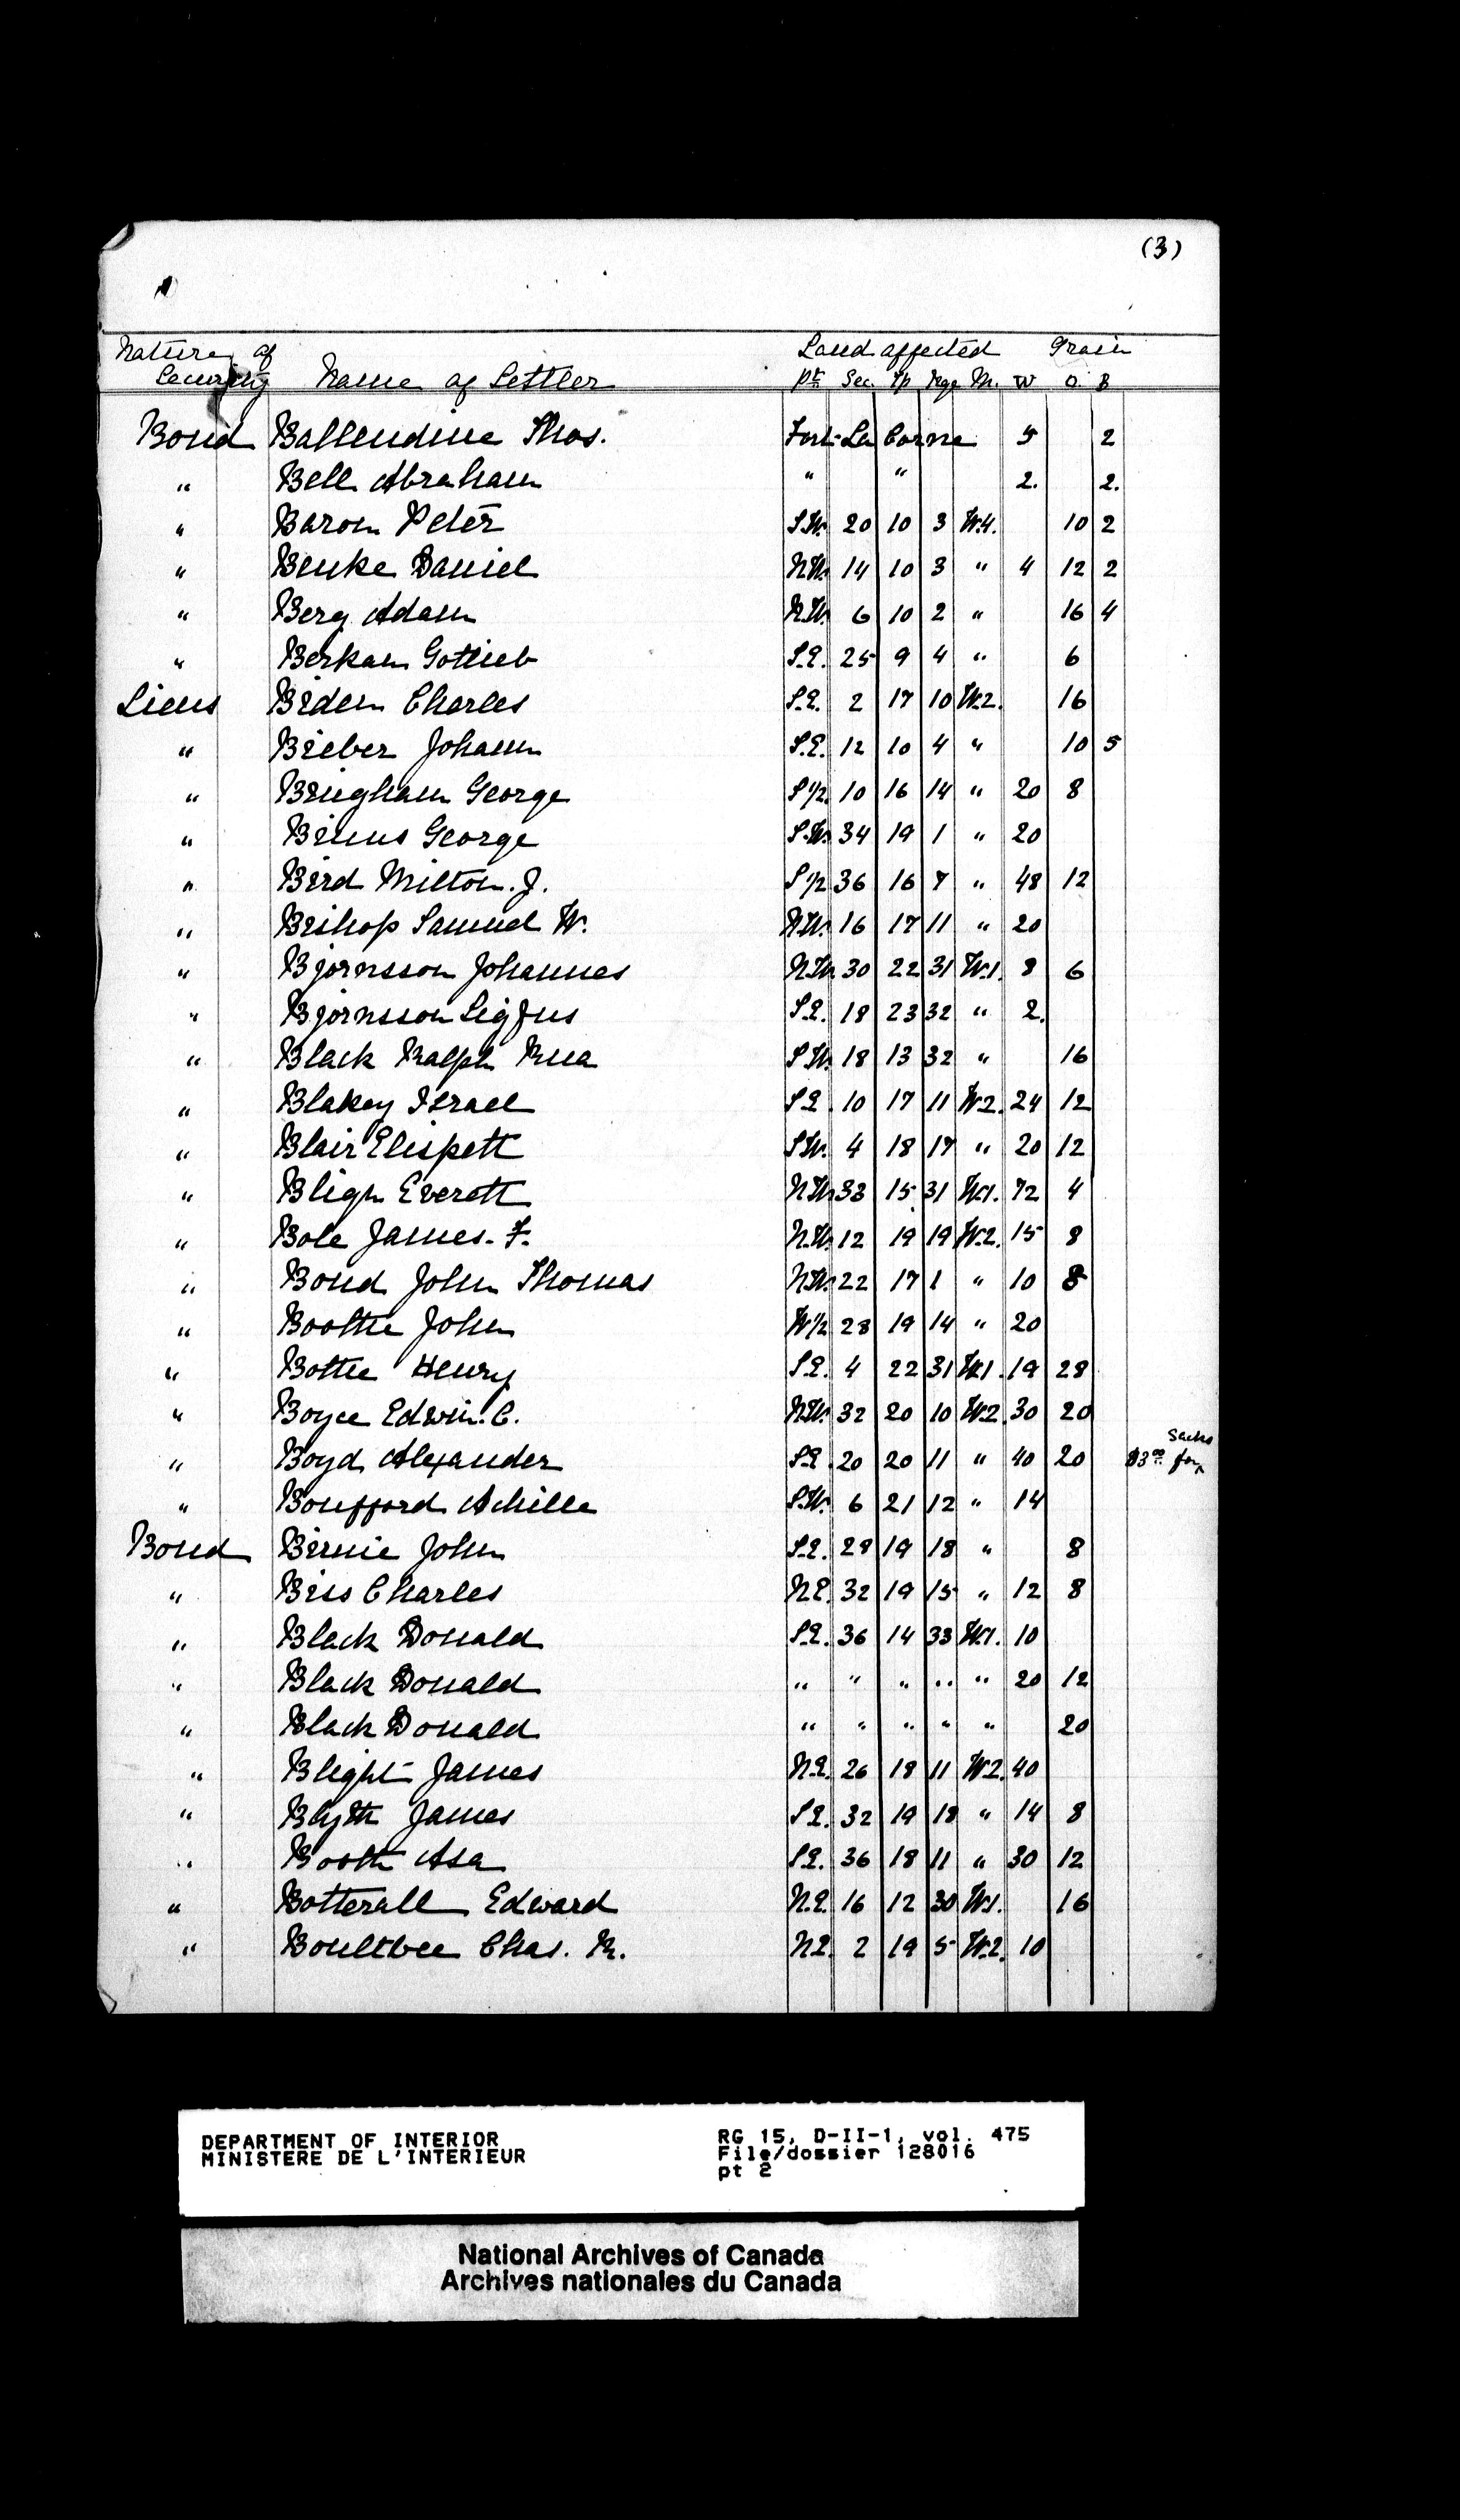 (3)
Nature of Land affected Grain
Security Name of Settler Pt. Sec. Tp Rge M. W O. B
Bond Ballendine Thos. Fort-La Corne 5 2
" Bell Abraham " " 2. 2.
" Baron Peter S.W. 20 10 3 W.4. 10 2
" Benke Daniel N.W. 14 10 3 " 4 12 2
" Berg Adam N.W. 6 10 2 " 16 4
" Berkam Gottieb S.E. 25 9 4 " 6
Liens Biden Charles S.E. 2 17 10 W.2. 16
" Bieber Johann S.E. 12 10 4 " 10 5
" Bingham George S 1/2 10 16 14 " 20 8
" Binns George S.W. 34 19 1 " 20
" Bird Milton. J. S 1/2 36 16 7 " 48 12
" Bishop Samuel W. N.W. 16 17 11 " 20
" Bjornsson Johannes N.W. 30 22 31 W.1. 8 6
" Bjornsson Sigfus S.E. 18 23 32 " 2.
" Black Ralph S.W. 18 13 32 " 16
" Blakey Israel S.E. 10 17 11 W.2. 24 12
" Blair Elispett S.W. 4 18 17 " 20 12
" Bligh Everett N.W. 33 15 31 W.1. 72 4
" Bole James. F. N.W. 12 19 19 W.2. 15 8
" Bond John Thomas N.W. 22 17 1 " 10 8
" Boothe John W 1/2 28 19 14 " 20
" Botte Henry S.E. 4 22 31 W.1. 19 28
" Boyce Edwin. C. N.W. 32 20 10 W.2. 30 20
" Boyd Alexander S.E. 20 20 11 " 40 20 $3.00 for Sacks
" Boufford Achille S.W. 6 21 12 " 14
Bond Birnie John S.E. 28 19 18 " 8
" Bris Charles N.E. 32 19 15 " 12 8
" Black Donald S.E. 36 14 33 W.1. 10
" Black Donald " " " " " 20 12
" Black Donald " " " " " 20
" Blight James N.E. 26 18 11 W.2. 40
" Blyth James S.E. 32 19 18 " 14 8
" Booth Asa S.E. 36 18 11 " 30 12
" Botterall Edward N.E. 16 12 30 W.1. 16
" Boultbee Chas. R. N.E. 2 19 5 W.2. 10
DEPARTMENT OF INTERIOR
MINISTERE DE L'INTERIEUR
RG 15, D-II-1, vol. 475
File/dossier 128016
pt 2
National Archives of Canada
Archives nationales du Canada